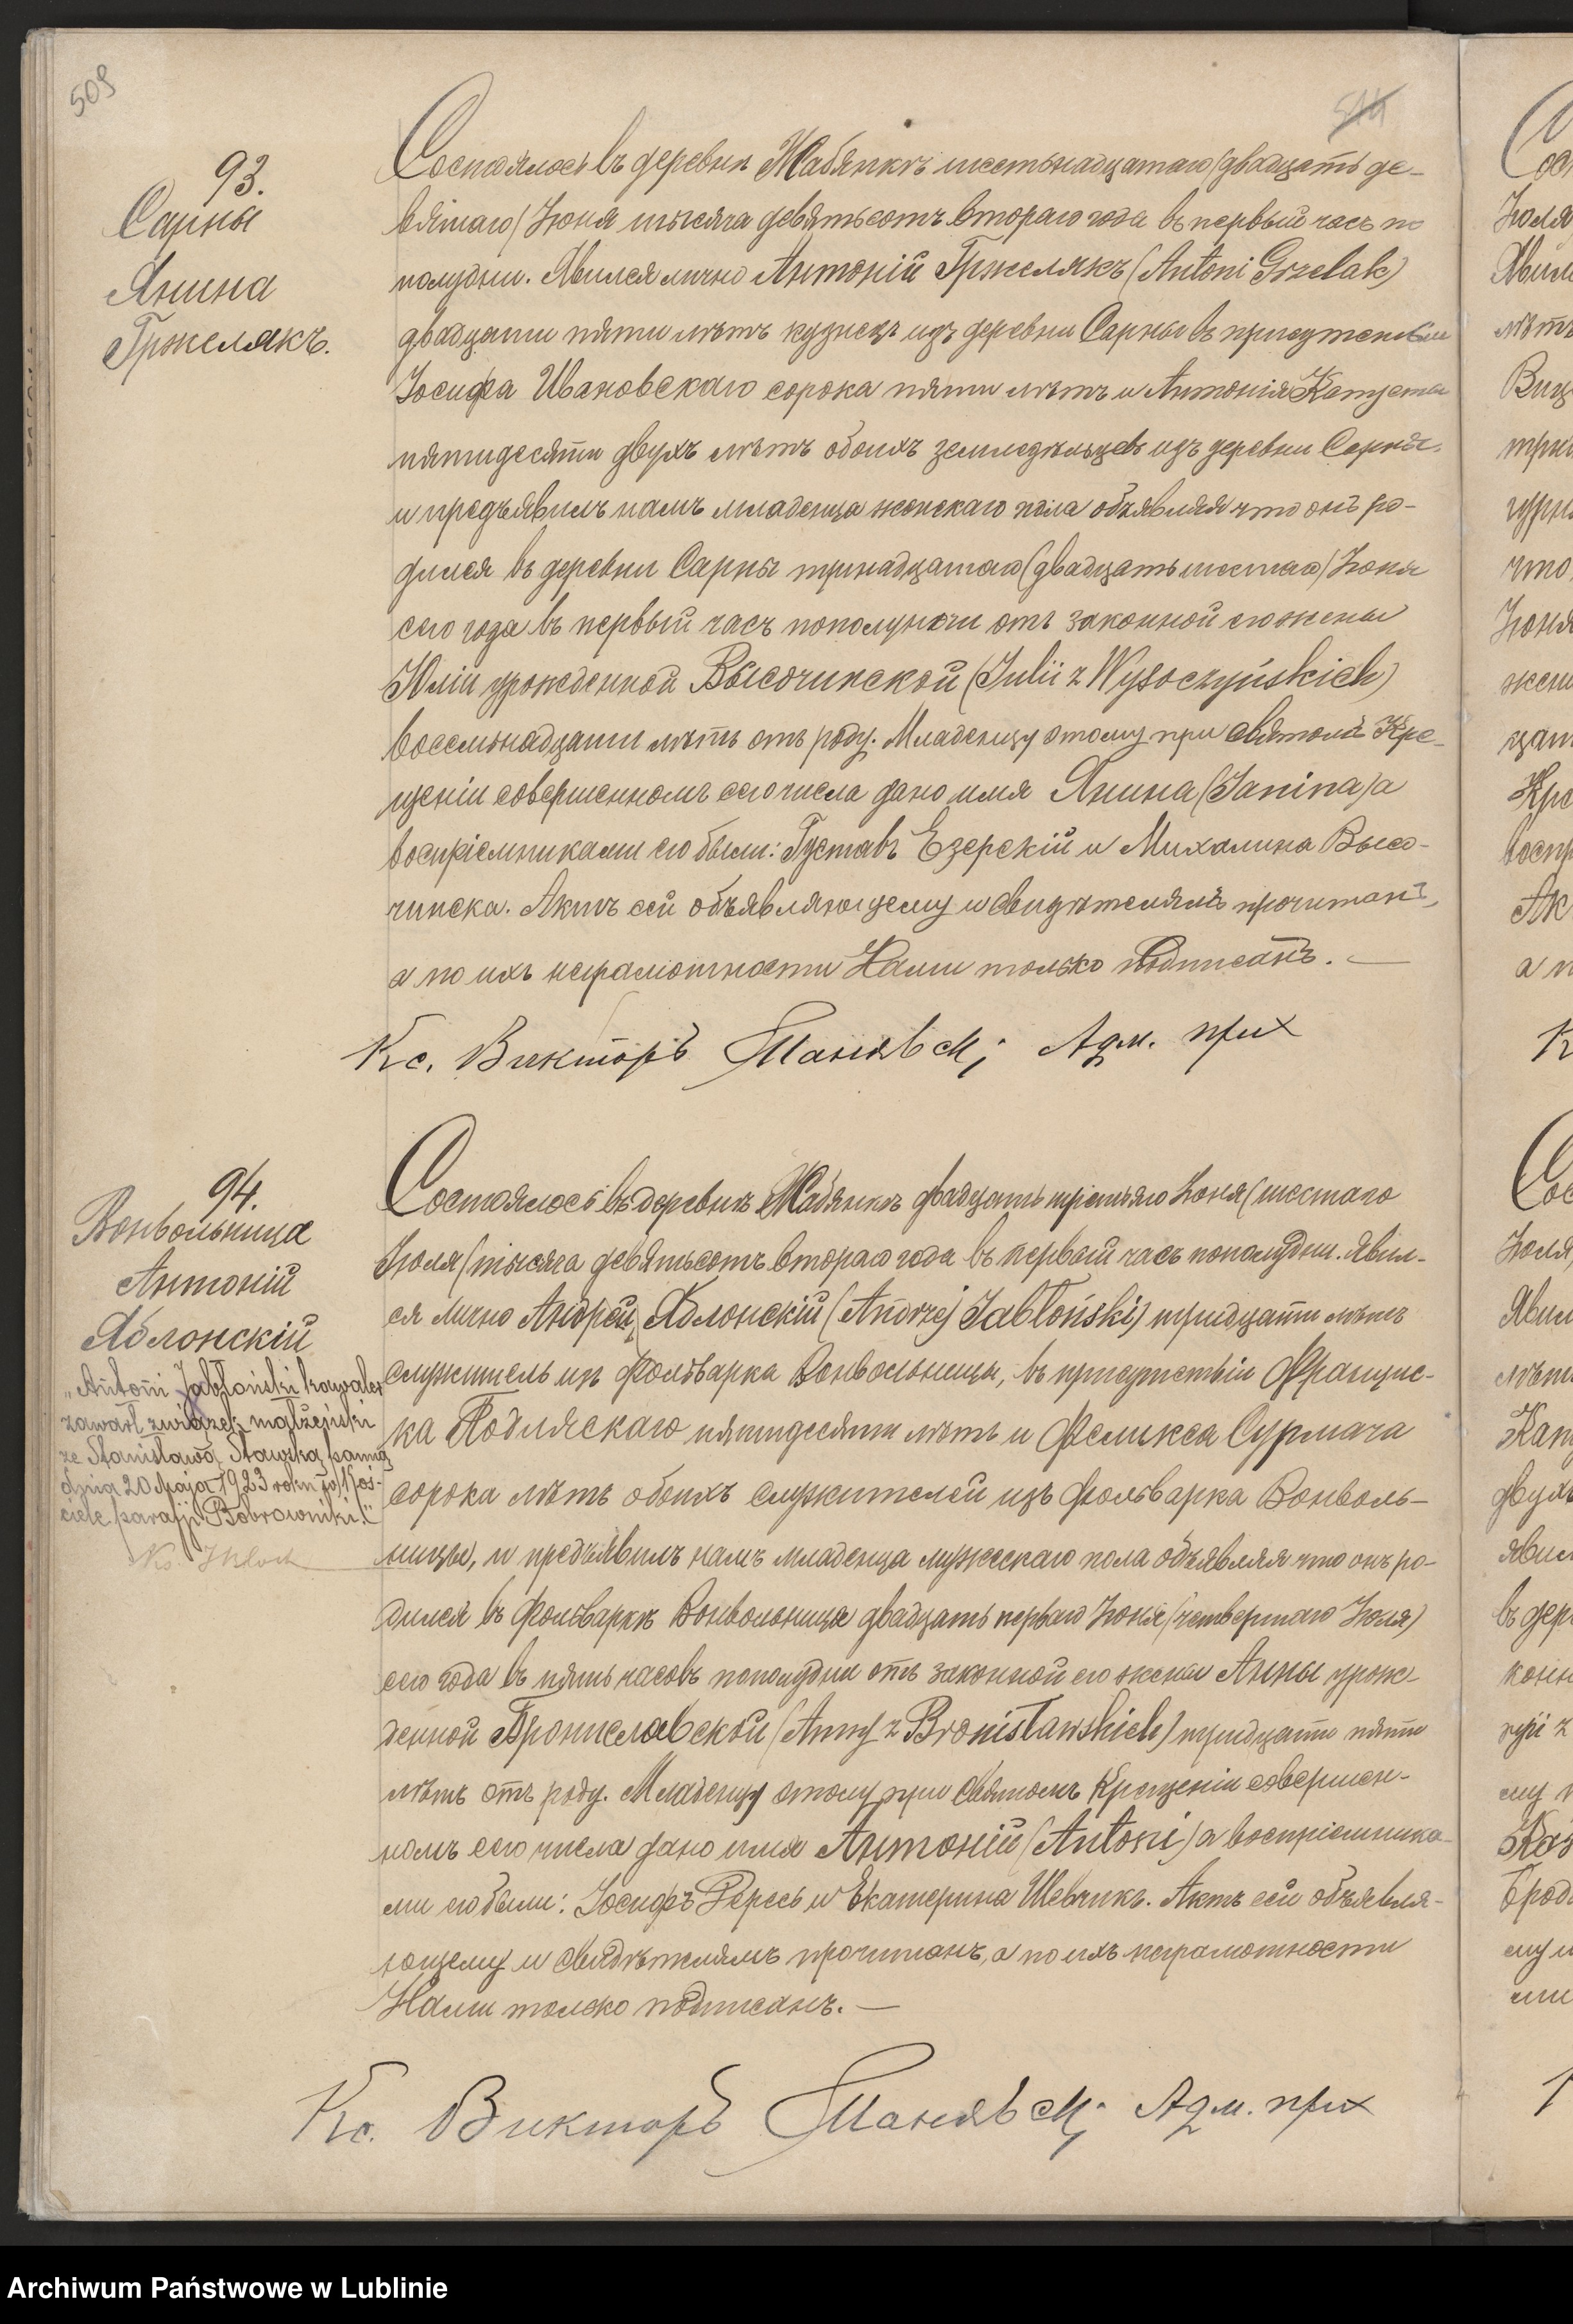 509
514
93.
Сарны
Янина
Гржелякъ.
Состоялось въ деревнѣ Жабянкѣ шестьнадцатаго /двадцать де-
вятаго/ Іюня тысяча девятьсотъ втораго года въ первый часъ по
полудни. Явился лично Антоній Гржелякъ (Antoni Grzelak)
двадцати пяти лѣтъ кузнецъ изъ деревни Сарны въ присутствіи
Іосифа Ивановскаго сорока пяти лѣтъ и Антонія Капусты
пятидесяти двухъ лѣтъ обоихъ земледѣльцевъ изъ деревни Сарны.
и предъявилъ намъ младенца женскаго пола объявляя что онъ ро-
дился въ деревни Сарны тринадцатаго (двадцать шестаго) Іюня
сего года въ первый часъ пополуночи отъ законной его жены
Юліи урожденной Высочинской (Julii z Wysoczyńskich)
восемьнадцати лѣтъ отъ роду. Младенцу этому при святомъ Кре-
щеніи совершенномъ сего числа дано имя Янина (Janina) а
воспріемниками его были: Густавъ Езерскій и Михалина Высо-
чинска. Актъ сей объявляющему и свидѣтелямъ прочитанъ,
а по ихъ неграмотности Нами только подписанъ. —
Кс. Викторъ Адм. прих
94.
Вонвольница
Антоній
Яблонскій
"Antoni Jabłoński kawaler
zawarł związek małżeński
ze Stanisławą Sławską panną
dnia 20 Maja 1923 roku w koś-
ciele parafji Bobrowniki."
Состоялось въ деревнѣ Жабянкѣ двадцать третьяго Іюня (шестаго
Іюля) тысяча девятьсотъ втораго года въ первый часъ пополудни. Явил-
ся лично Андрей Яблонскій (Andrzej Jabłoński) тридцати лѣтъ
служитель изъ фольварка Вонвольницы, въ присутствіи Францис-
ка Подляскаго пятидесяти лѣтъ и Феликса Сурмача
сорока лѣтъ обоихъ служителей изъ фольварка Вонволь-
ницы, и предъявилъ намъ младенца мужескаго пола объявляя что онъ ро-
дился въ фольваркѣ Вонвольница двадцать перваго Іюня (четвертаго Іюля)
сего года въ пять часовъ пополудни отъ законной его жены Анны урож-
денной Брониславской (Anny z Bronisławskich) тридцати пяти
лѣтъ отъ роду. Младенцу этому при Святомъ Крещеніи совершен-
номъ сего числа дано имя Антоній (Antoni) а воспріемника-
ми его были: Іосифъ Рересь и Екатерина Шевчикъ. Актъ сей объявля-
ющему и свидѣтелямъ прочитанъ, а по ихъ неграмотности
Нами только подписанъ. —
Кс. Викторъ Адм. прих
Archiwum Państwowe w Lublinie